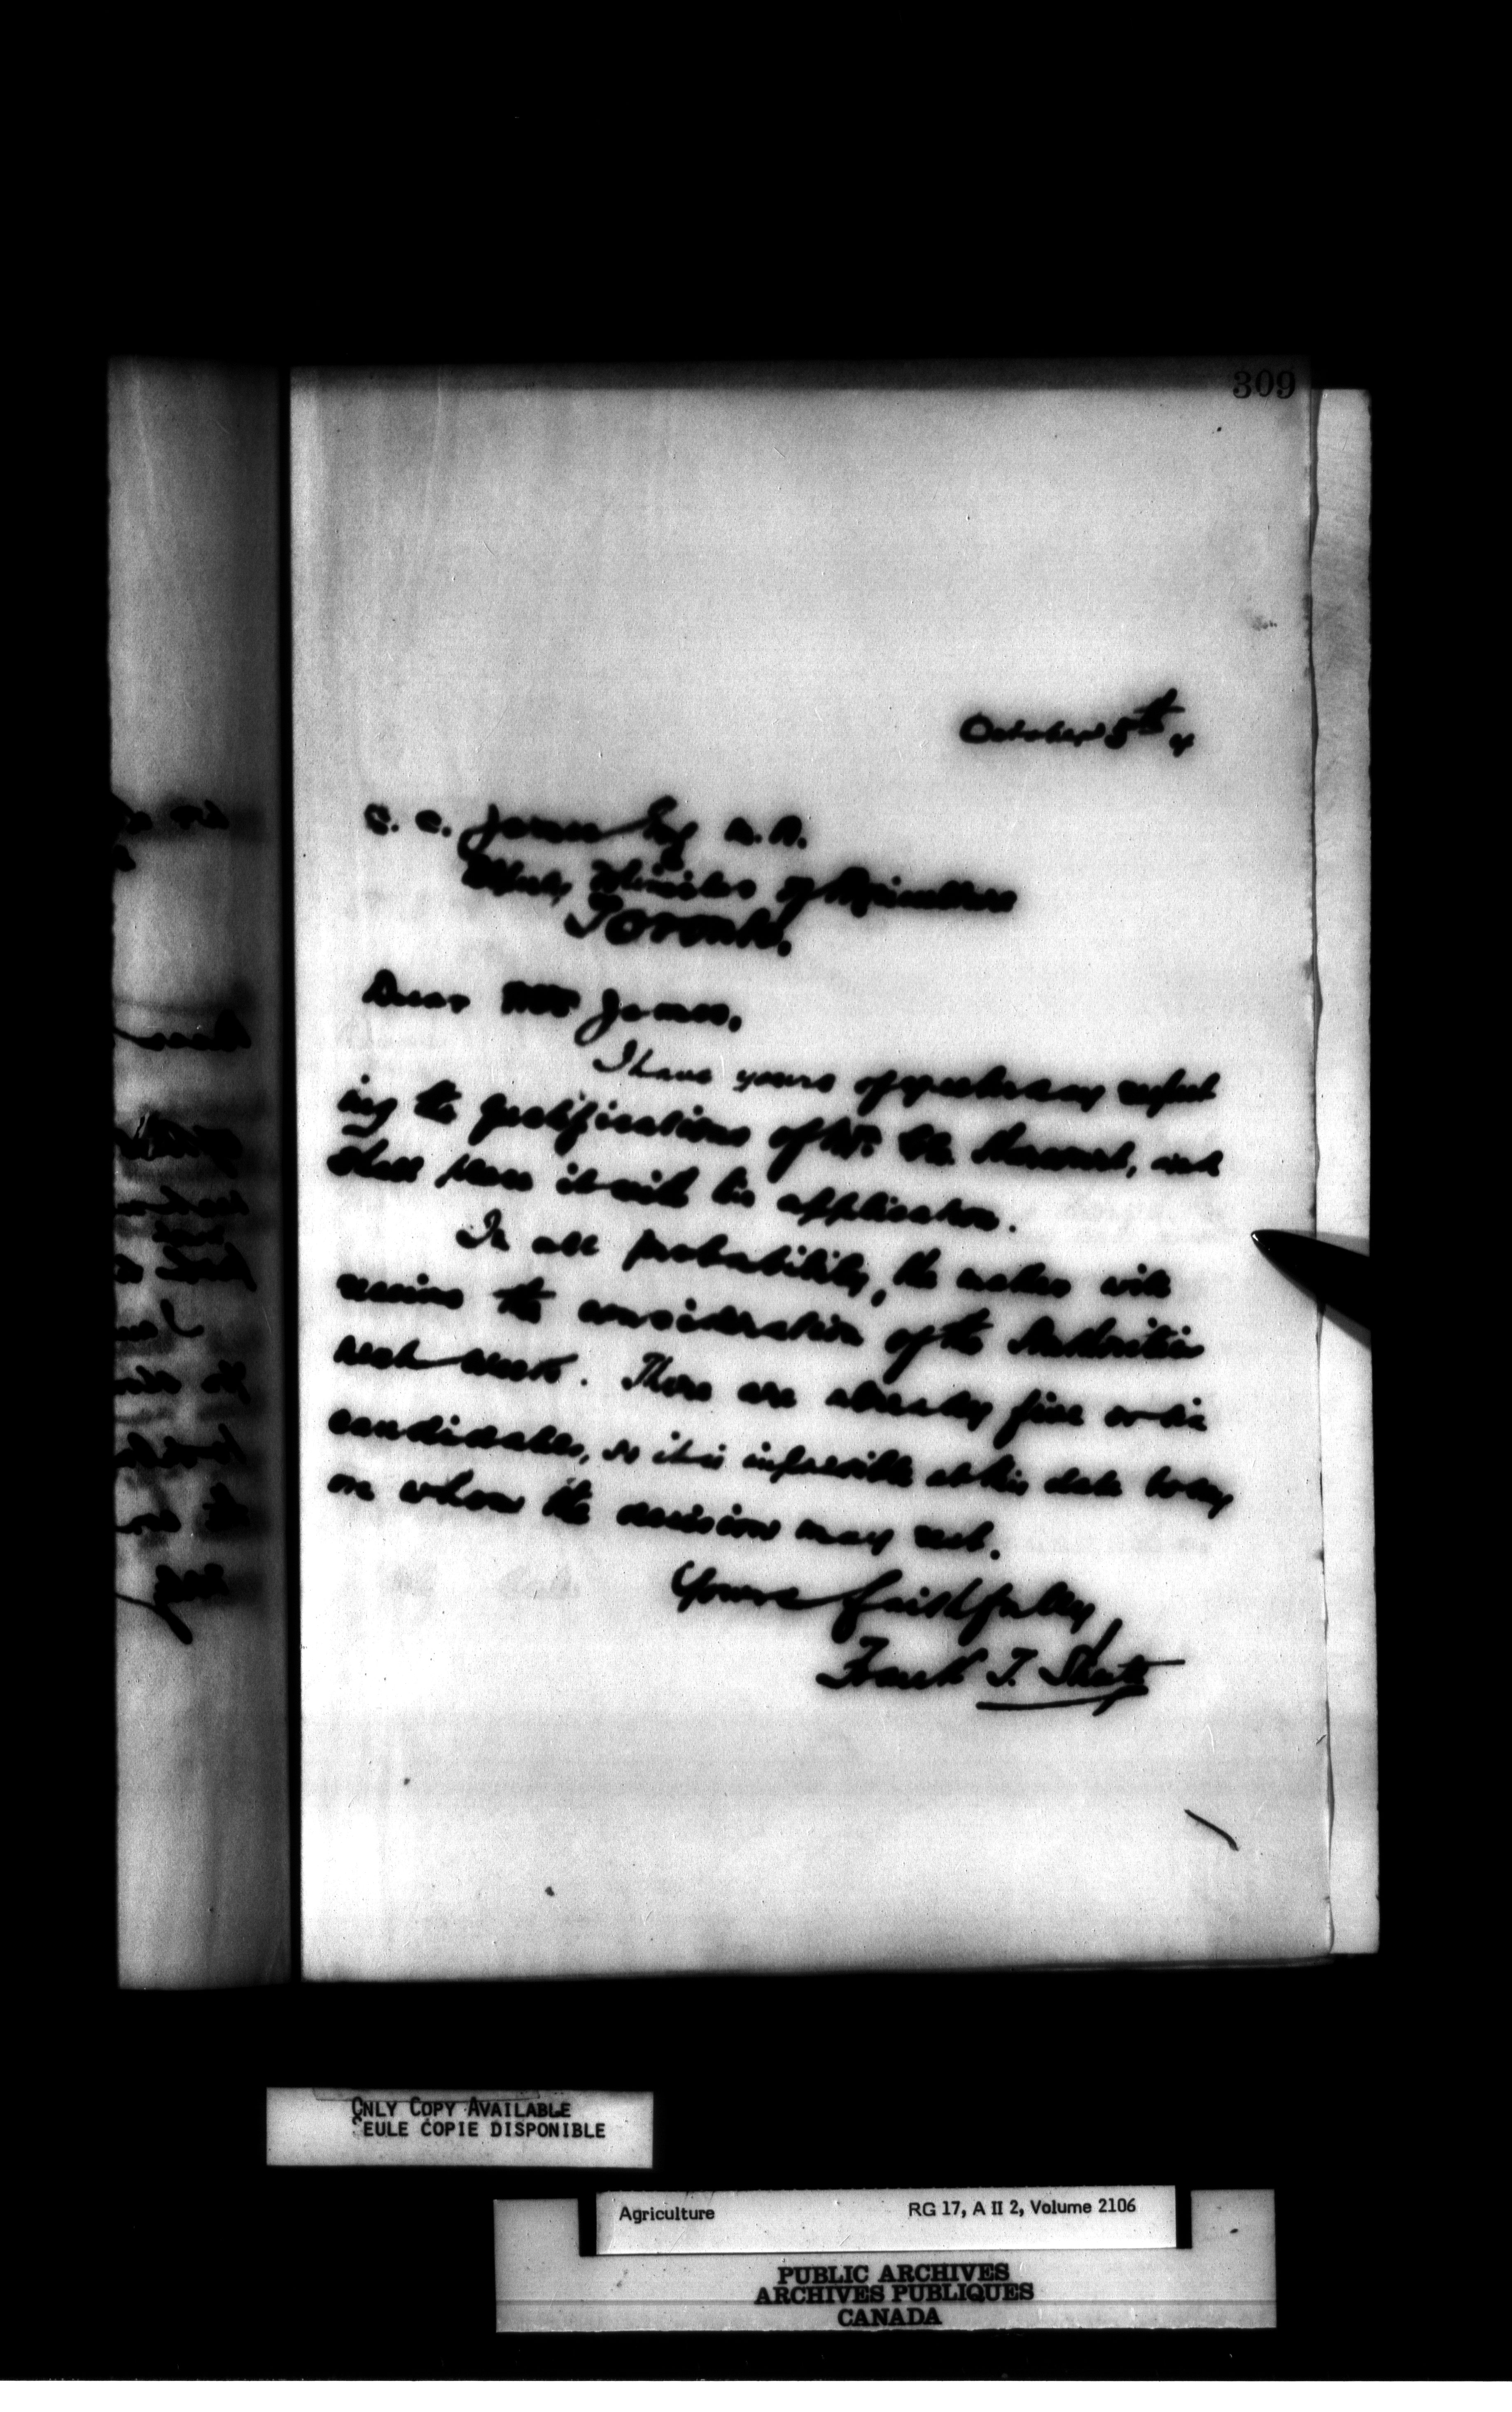 309
October 5th
C. C. James Esq M.A.
Deputy Minister of Agriculture
Toronto.
Dear Mr James,
I have yours of yesterday respect
ing the qualifications of Mr. and
shall place it with his application.
In all probability, the matter will
receive the consideration of the Authorities
next week. There are already five or six
candidates, so it is impossible at this date to say
on whom the decision may rest.
Yours faithfully,
Frank T. Shutt
ONLY COPY AVAILABLE
SEULE COPIE DISPONIBLE
Agriculture RG 17, A II 2, Volume 2106
PUBLIC ARCHIVES
ARCHIVES PUBLIQUES
CANADA